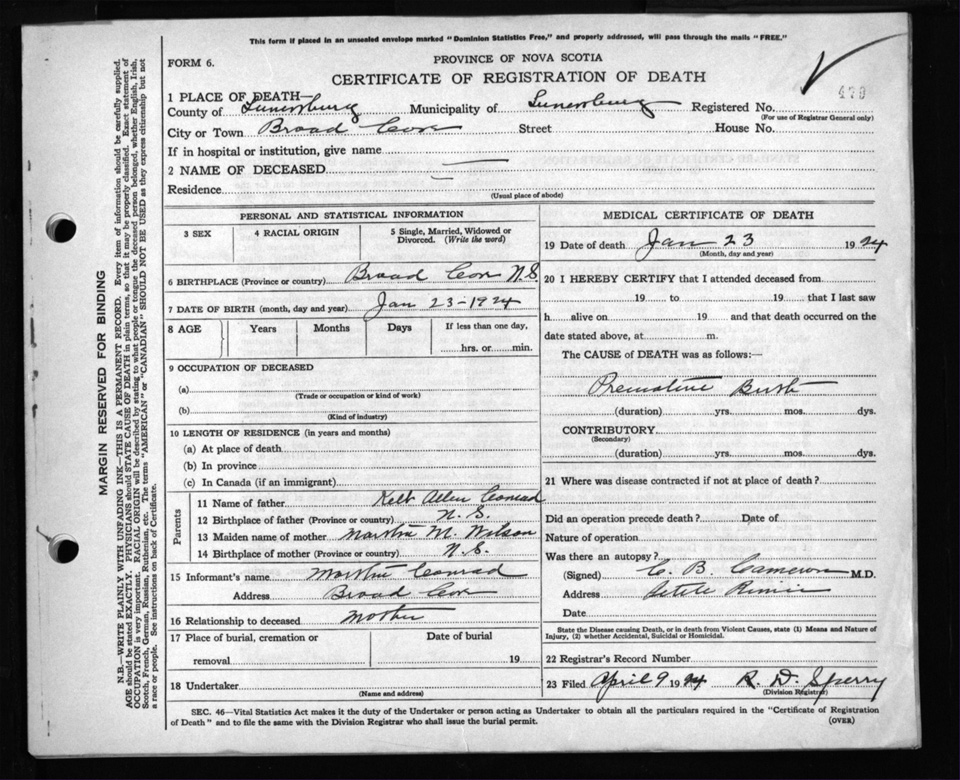 This form if placed in an unsealed envelope marked "Dominion Statistics Free," and properly addressed, will pass through the mails "FREE."
FORM 6.
PROVINCE OF NOVA SCOTIA
CERTIFICATE OF REGISTRATION OF DEATH
479
1 PLACE OF DEATH—
County of Lunenburg Municipality of Lunenburg Registered No.
(For use of Registrar General only)
City or Town Broad Cove Street House No.
If in hospital or institution, give name
2 NAME OF DECEASED
Residence
(Usual place of abode)
PERSONAL AND STATISTICAL INFORMATION
3 SEX
4 RACIAL ORIGIN
5 Single, Married, Widowed or Divorced. (Write the word)
6 BIRTHPLACE (Province or country) Broad Cove N.S.
7 DATE OF BIRTH (month, day and year) Jan 23-1924
8 AGE Years Months Days If less than one day,
hrs. or min.
9 OCCUPATION OF DECEASED
(a)
(Trade or occupation or kind of work)
(b)
(Kind of industry)
10 LENGTH OF RESIDENCE (in years and months)
(a) At place of death
(b) In province
(c) In Canada (if an immigrant)
Parents
11 Name of father Allen Conrad
12 Birthplace of father (Province or country) N.S.
13 Maiden name of mother Martha M. Wilson
14 Birthplace of mother (Province or country) N.S.
15 Informant's name Martha Conrad
Address Broad Cove
16 Relationship to deceased Mother
17 Place of burial, cremation or removal
Date of burial
19
18 Undertaker
(Name and address)
MEDICAL CERTIFICATE OF DEATH
19 Date of death Jan 23 1924
(Month, day and year)
20 I HEREBY CERTIFY that I attended deceased from
19 to 19 that I last saw
h alive on 19 and that death occurred on the
date stated above, at m.
The CAUSE of DEATH was as follows:—
Premature Birth
(duration) yrs. mos. dys.
CONTRIBUTORY
(Secondary)
(duration) yrs. mos. dys.
21 Where was disease contracted if not at place of death?
Did an operation precede death? Date of
Nature of operation
Was there an autopsy?
(Signed) C. B. Cameron M.D.
Address Petite Riviere
Date
State the Disease causing Death, or in death from Violent Causes, state (1) Means and Nature of
Injury, (2) whether Accidental, Suicidal or Homicidal.
22 Registrar's Record Number
23 Filed April 9 1924 R. D. Sperry
(Division Registrar)
SEC. 46—Vital Statistics Act makes it the duty of the Undertaker or person acting as Undertaker to obtain all the particulars required in the "Certificate of Registration
of Death" and to file the same with the Division Registrar who shall issue the burial permit.
(OVER)
MARGIN RESERVED FOR BINDING
N.B.—WRITE PLAINLY WITH UNFADING INK—THIS IS A PERMANENT RECORD. Every item of information should be carefully supplied.
AGE should be stated EXACTLY. PHYSICIANS should STATE CAUSE OF DEATH in plain terms, so that it may be properly classified. Exact statement of
OCCUPATION is very important. RACIAL ORIGIN will be described by stating to what people or tongue the deceased person belonged, whether English, Irish,
Scotch, French, German, Russian, Ruthenian, etc. The terms "AMERICAN" or "CANADIAN" SHOULD NOT BE USED as they express citizenship but not
a race or people. See instructions on back of Certificate.